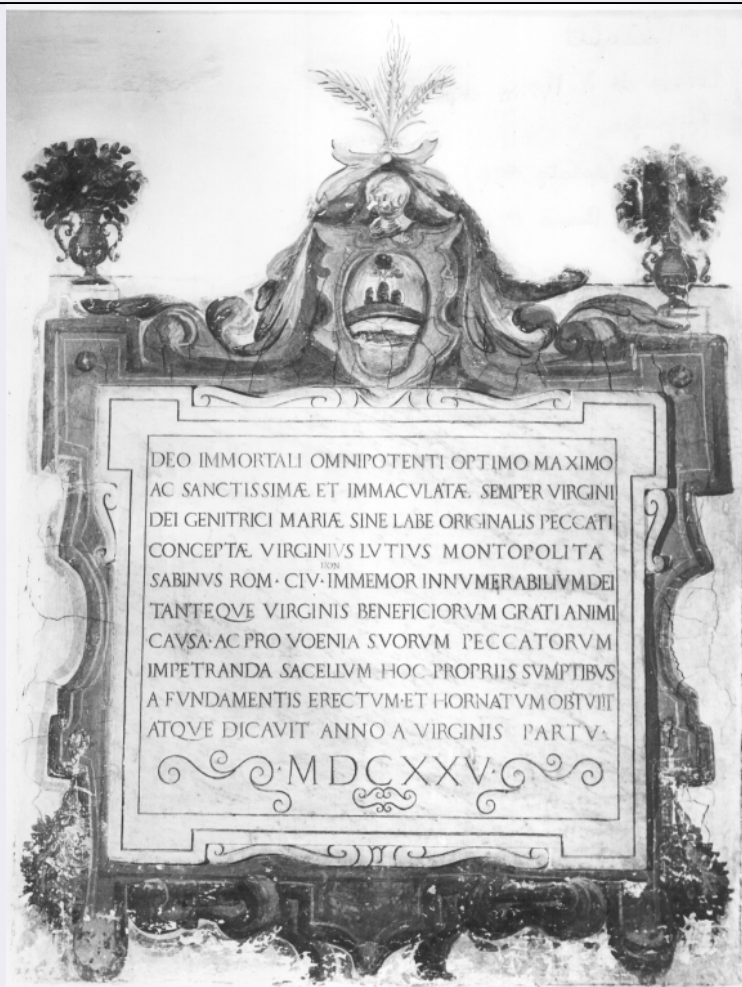 DEO IMMORTALI OMNIPOTENTI OPTIMO MAXIMO
AC SANCTISSIMÆ ET IMMACVLATÆ SEMPER VIRGINI
DEI GENITRICI MARIÆ SINE LABE ORIGINALIS PECCATI
CONCEPTÆ VIRGINIVS LVTIVS MONTOPOLITA
NON
SABINVS ROM · CIV · IMMEMOR INNVMERABILIVM DEI
TANTEQVE VIRGINIS BENEFICIORVM GRATI ANIMI
CAVSA · AC PRO VOENIA SVORVM PECCATORVM
IMPETRANDA SACELLVM HOC PROPRIIS SVMPTIBVS
A FVNDAMENTIS ERECTVM · ET HORNATVM OBTVLIT
ATQVE DICAVIT ANNO A VIRGINIS PARTV ·
· MDCXXV ·